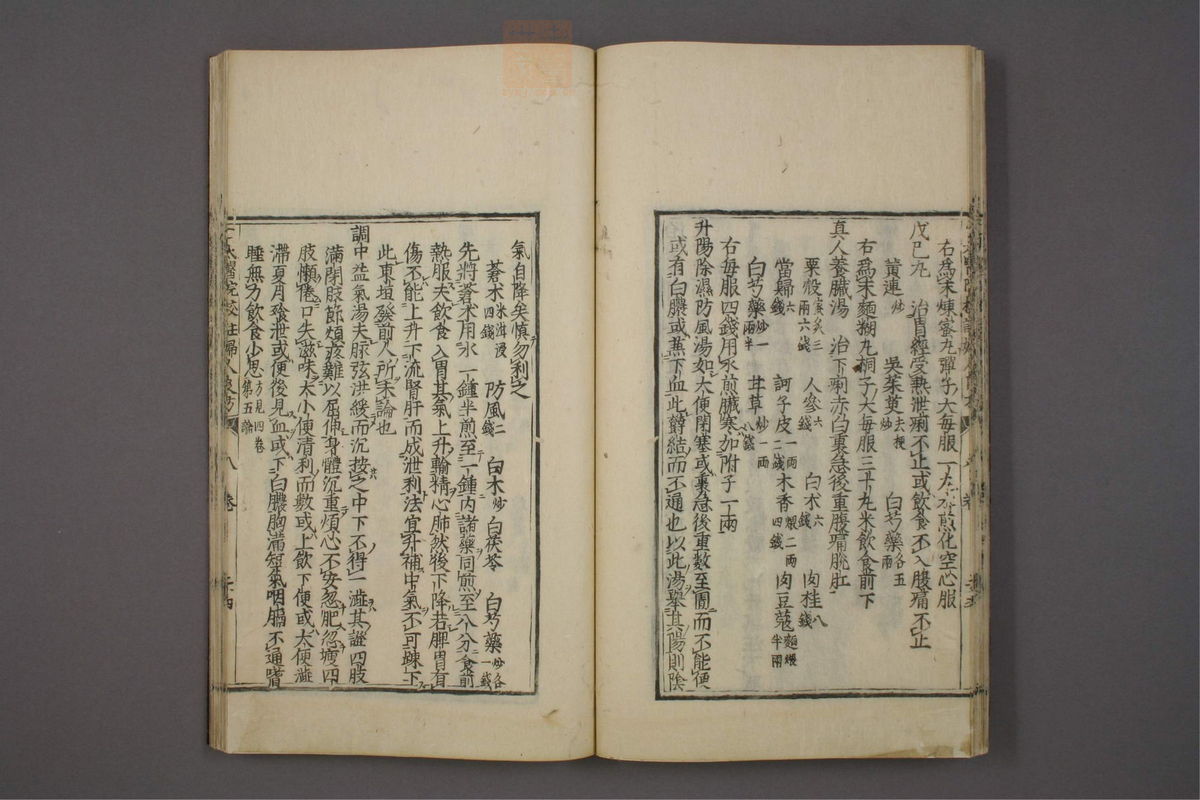 右爲末煉蜜丸彈子大每服一丸水煎化空心服
戊已丸 治胃經受熱泄痢不止或飲食不入腹痛不止
黃連炒 吳茱萸去梗炒 白芍藥各五兩
右爲末麵糊丸桐子大每服三十丸米飲食前下
真人養臟湯 治下痢赤白裏急後重腹痛脫肛
粟殼蜜炙三兩六錢 人參六錢 白朮六錢 肉桂八錢
當歸六錢 訶子皮一兩二錢 木香二兩四錢 肉豆蔻麵煨半兩
白芍藥炒一兩半 甘草炒一兩八錢
右每服四錢用水煎臟寒加附子一兩
升陽除濕防風湯如大便閉塞或裏急後重數至圊而不能便
或有白膿或蒸下血此欝結而不通也以此湯舉其陽則陰
氣自降矣慎勿利之
蒼朮米泔浸四錢 防風二錢 白朮炒 白茯苓 白芍藥炒各一錢
先將蒼朮用水一鍾半煎至一鍾內諸藥同煎至八分食前
熱服夫飲食入胃其氣上升輸精心肺然後下降若脾胃有
傷不能上升下流腎肝而成泄利法宜升補中氣不可踈下
此東垣發前人所未論也
調中益氣湯夫脈弦洪緩而沉按之中下不得一澁其證四肢
滿閉肢節煩疼難以屈伸身體沉重煩心不安忽肥忽瘦四
肢懶倦口失滋味大小便清利而數或上飲下便或大便澁
滯夏月飱泄或便後見血或下白膿胸滿短氣咽膈不通嗜
睡無力飲食少思方見四卷第五論
太醫院校註婦人良方 八卷 二十四